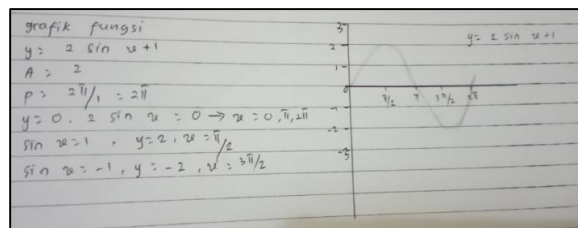 grafik fungsi
y = 2 sin x + 1
A = 2
P = 2π/1 = 2π
y = 0, 2 sin x = 0 → x = 0, π, 2π
sin x = 1, y = 2, x = π/2
sin x = -1, y = -2, x = 3π/2
y = 2 sin x + 1
3
2
1
0
-1
-2
-3
π/2
π
3π/2
2π